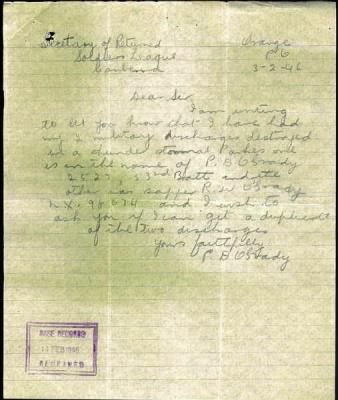 Secretary of Returned
Soldiers League
Canberra
Orange
P O
3-2-46
Dear Sir
I am writing
to let you know that I have had
my 2 military discharges destroyed
in a thunder storm at Parkes one
is in the name of P. B O'Grady
2527, 33rd Batt and the
other as sapper O'Grady
NX. and I wish to
ask you if I can get a duplicate
of the two discharges
Yours faithfully
P B O'Grady
BASE RECORDS
FEB 1946
RECEIVED